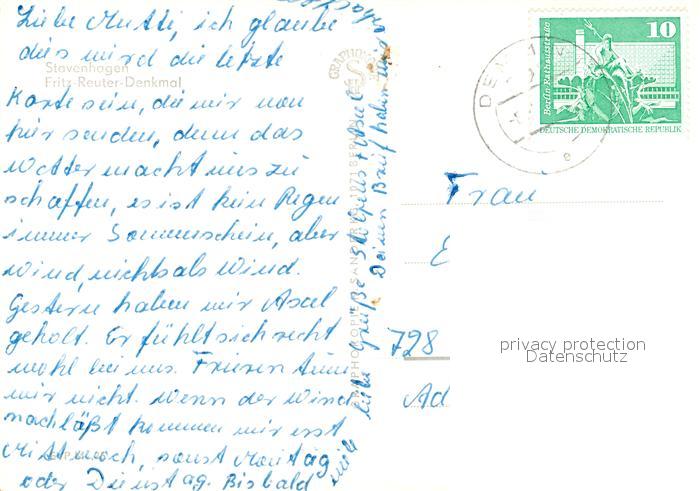 Liebe Mutti, ich glaube
dies wird die letzte
Karte sein, die wir von
hier senden, denn das
Wetter macht uns zu
schaffen, es ist kein Regen
immer Sonnenschein, aber
Wind, nichts als Wind.
Gestern haben wir Axel
geholt. Er fühlt sich recht
wohl bei uns. Frieren tun
wir nicht. Wenn der Wind
nachläßt kommen wir erst
Mittwoch, sonst Montag
oder Dienstag. Bis bald
viele liebe Grüße
Deinen Brief haben wir
Stavenhagen
Fritz-Reuter-Denkmal
10
Berlin-Rathausstraße
DEUTSCHE DEMOKRATISCHE REPUBLIK
Frau
E
728
Ad
privacy protection
Datenschutz